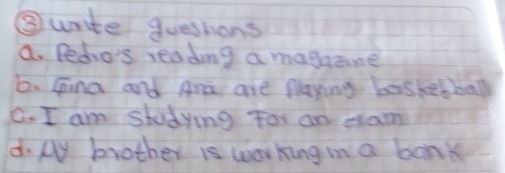 ③ write questions
a. Pedro's reading a magazine
b. Gina and Ana are playing basketball
c. I am studying For an exam
d. My brother is working in a bank